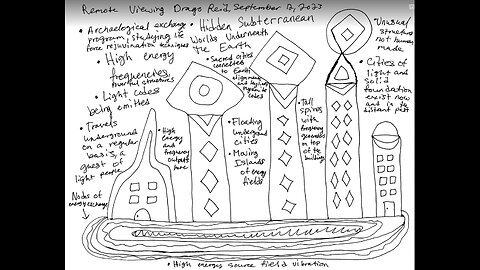 Remote Viewing Drago Reid, September 12, 2023
• Archaelogical exchange
program, studying the
face rejuvination techniques
• High energy
frequencies,
fruitful structures
• Light codes
being emitted
• Travels
underground
on a regular
basis, a
guest of
light people
Nodes of
energy exchange
• Hidden Subterranean
Worlds Underneath
the Earth
• Sacred cities
connected
to Earth
alignment and
pyramid
codes
• High
energy
and
frequency
output
here
• Floating
underground
cities
• Moving
Islands
of energy
fields
• Tall
spires
with
frequency
generators
on top
of the
building
• Unusual
structure
not human
made
• Cities of
light and
solid
foundation
exist now
and in the
distant past
• High energy source field vibration